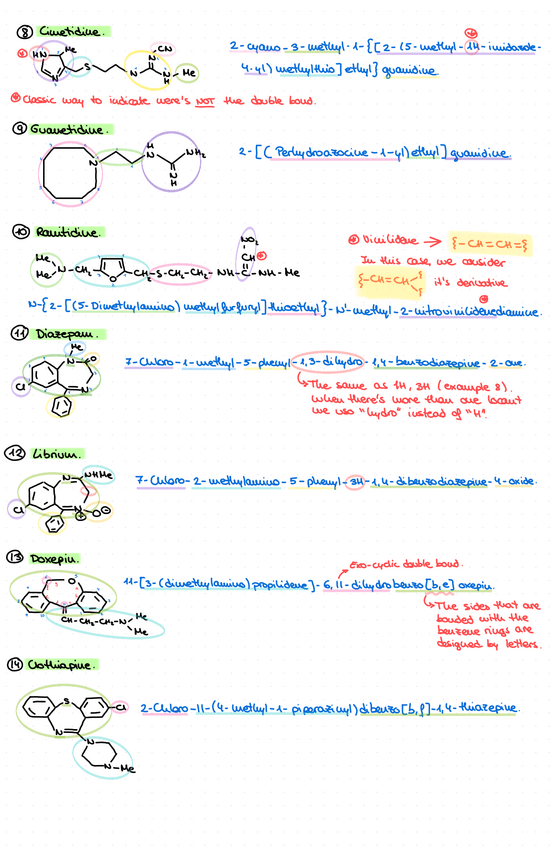 8 Cimetidine.
2-cyano-3-methyl-1-{[2-(5-methyl-1H-imidazole-
4-yl) methylthio]ethyl} guanidine
HN
Me
N
S
CN
N
N
N
H
Me
* Classic way to indicate were's NOT the double bond.
9 Guanetidine.
2-[(Perhydroazocine-1-yl)ethyl] guanidine.
N
H
N
NH2
N
H
10 Ranitidine.
* Vinilidene → {-CH=CH={
In this case we consider
{-CH=CH{ it's derivative
NO2
CH *
Me
Me
N-CH2
O
CH2-S-CH2-CH2-NH-C-NH-Me
N-{2-[(5-Dimethylamino) methylfurfuryl]-thioethyl}-N'-methyl-2-nitrovinilidenediamine.
11 Diazepam.
7-Chloro-1-methyl-5-phenyl-1,3-dihydro-1,4-benzodiazepine-2-one.
Me
N
O
Cl
N
The same as 1H, 3H (example 8).
When there's more than one locant
we use "hydro" instead of "H".
12 Librium.
7-Chloro-2-methylamino-5-phenyl-3H-1,4-dibenzodiazepine-4-oxide.
N
NHMe
Cl
N
O
13 Doxepin.
Exo-cyclic double bond.
11-[3-(dimethylamino) propilidene]-6,11-dihydrobenzo[b,e] oxepin.
O
CH-CH2-CH2-N
Me
Me
The sides that are
bonded with the
benzene rings are
designed by letters.
14 Clothiapine.
2-Chloro-11-(4-methyl-1-piperazinyl)dibenzo[b,f]-1,4-thiazepine.
S
Cl
N
N
N-Me